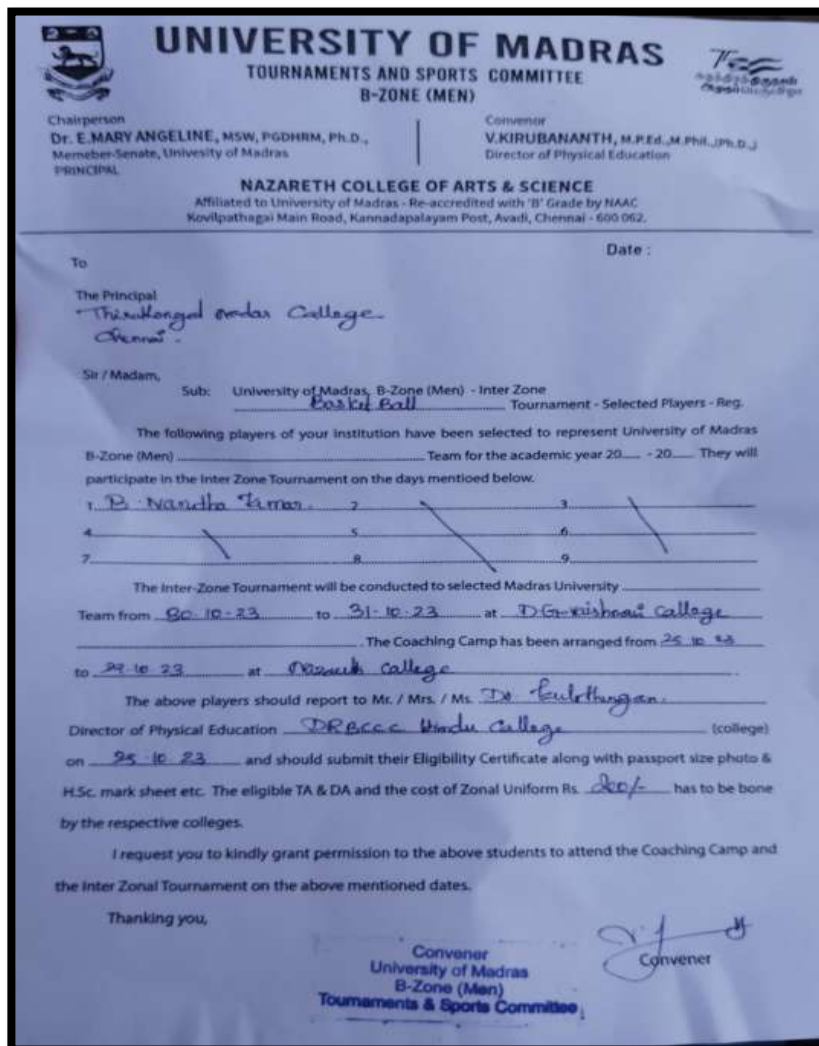 UNIVERSITY OF MADRAS
TOURNAMENTS AND SPORTS COMMITTEE
B-ZONE (MEN)
Chairperson
Dr. E.MARY ANGELINE, MSW, PGDHRM, Ph.D.,
Memeber-Senate, Univesity of Madras
PRINCIPAL
Convenor
V.KIRUBANANTH, M.P.Ed.,M.Phil.,(Ph.D.,)
Director of Physical Education
NAZARETH COLLEGE OF ARTS & SCIENCE
Affiliated to University of Madras - Re-accredited with 'B' Grade by NAAC
Kovilpathagai Main Road, Kannadapalayam Post, Avadi, Chennai - 600 062.
Date :
To
The Principal
College
Chennai.
Sir / Madam,
Sub: University of Madras, B-Zone (Men) - Inter Zone
Basket Ball Tournament - Selected Players - Reg.
The following players of your institution have been selected to represent University of Madras
B-Zone (Men) Team for the academic year 20 - 20 They will
participate in the Inter Zone Tournament on the days mentioed below.
1. B. Nandha Kumar. 2 3
4 5 6
7 8 9
The Inter-Zone Tournament will be conducted to selected Madras University
Team from 30-10-23 to 31-10-23 at D.G. College
. The Coaching Camp has been arranged from 25 10 23
to 29 10 23 at College
The above players should report to Mr. / Mrs. / Ms. Dr.
Director of Physical Education DRBCCC Hindu College (college)
on 25 10 23 and should submit their Eligibility Certificate along with passport size photo &
H.Sc. mark sheet etc. The eligible TA & DA and the cost of Zonal Uniform Rs. 200/- has to be bone
by the respective colleges.
I request you to kindly grant permission to the above students to attend the Coaching Camp and
the Inter Zonal Tournament on the above mentioned dates.
Thanking you,
Convener
University of Madras
B-Zone (Men)
Tournaments & Sports Committee
Convener